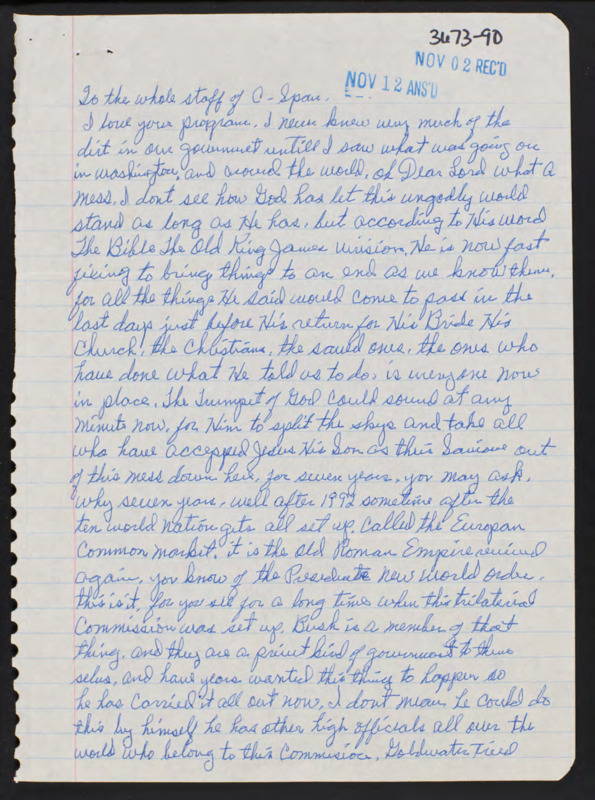 3673-90
NOV 02 REC'D
NOV 12 ANS'D
To the whole staff of C-Span.
I love your program. I never knew very much of the
dirt in our government untill I saw what was going on
in Washington, and around the world, oh Dear Lord what a
mess, I dont see how God has let this ungodly world
stand as long as He has, but according to His word
The Bible The Old King James version, He is now fast
fixing to bring things to an end as we know them,
for all the things He said would come to pass in the
last days just before His return for His Bride His
Church, the Christians, the saved ones, the ones who
have done what He told us to do, is every one now
in place. The Trumpet of God could sound at any
minute now, for Him to split the skys and take all
who have accepped Jesus His Son as their Saviour out
of this mess down here, for seven years, you may ask,
why seven years, well after 1992 sometime after the
ten world Nation gits all set up. Called the Europan
Common Market. it is the old Roman Empire revived
again, you know of the Presidents New World order.
this is it, for you see for a long time when this trilateral
Commission was set up. Bush is a member of that
thing, and they are a privet kind of government to them
selves, and have years wanted this thing to happen so
he has carried it all out now, I dont mean he could do
this by himself he has other high officials all over the
world who belong to this Commision. Goldwater tried